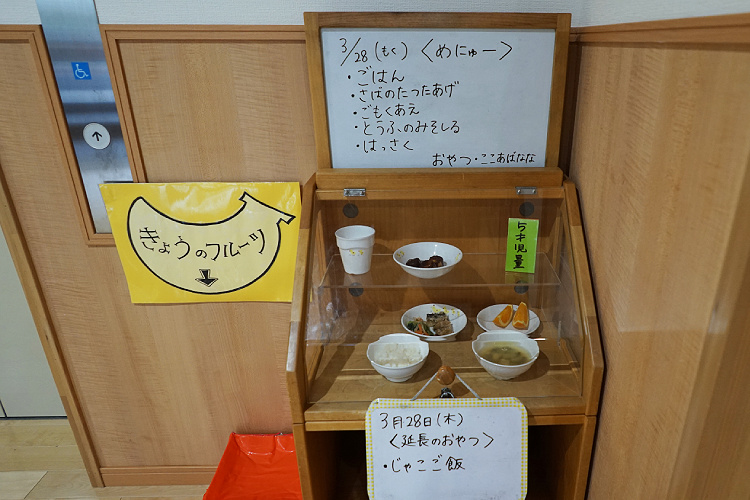 3/28(もく)〈めにゅー〉
・ごはん
・さばのたつたあげ
・ごもくあえ
・とうふのみそしる
・はっさく
おやつ・ここあばなな
きょうのフルーツ
↓
5才児量
3月28日(木)
〈延長のおやつ〉
・じゃこご飯